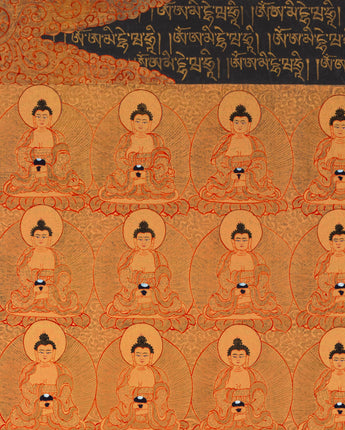 ཨོཾ་ཨ་མི་དྷེ་ཝ་ཧྲཱི། །ཨོཾ་ཨ་མི་དྷེ་ཝ་ཧྲཱི། །
ཨོཾ་ཨ་མི་དྷེ་ཝ་ཧྲཱི། །ཨོཾ་ཨ་མི་དྷེ་ཝ་ཧྲཱི། །ཨོཾ་ཨ་མི་
ཨོཾ་ཨ་མི་དྷེ་ཝ་ཧྲཱི། །ཨོཾ་ཨ་མི་དྷེ་ཝ་ཧྲཱི། །